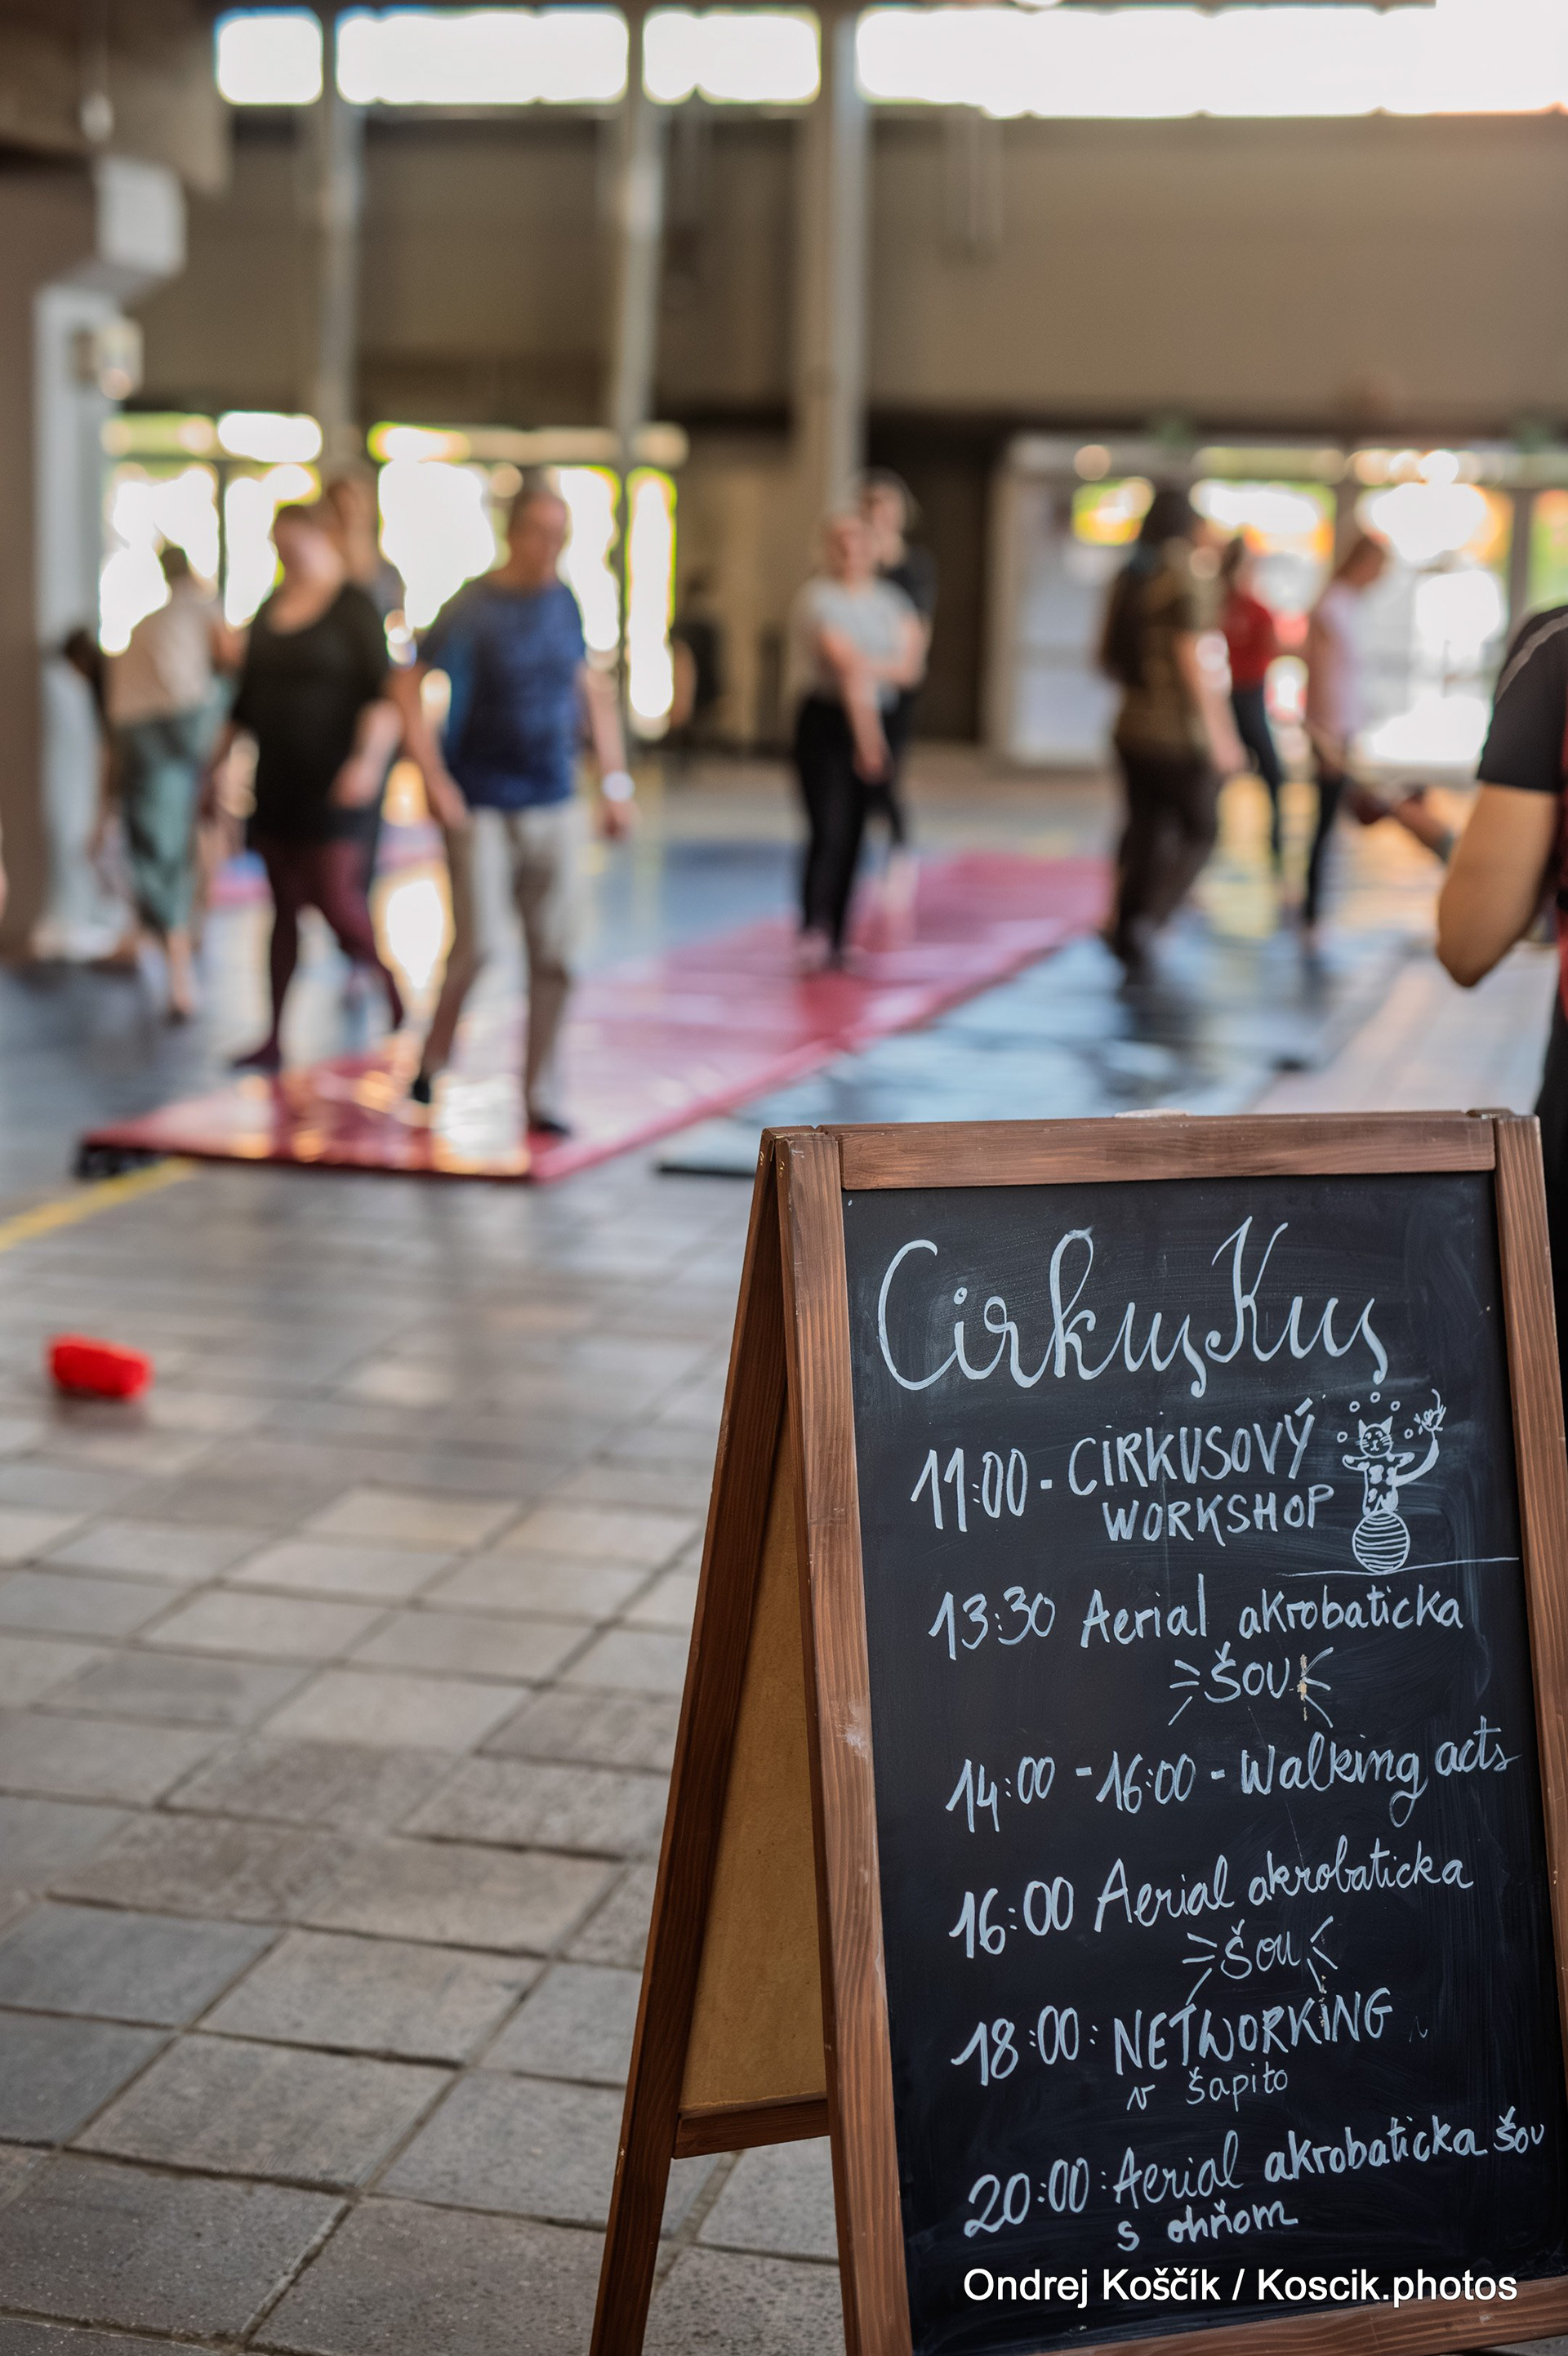 CirkusKus
11:00 - CIRKUSOVÝ
WORKSHOP
13:30 Aerial akrobaticka
ŠOU
14:00 - 16:00 - Walking acts
16:00 Aerial akrobaticka
Šou
18:00: NETWORKING
v šapito
20:00: Aerial akrobaticka šou
s ohňom
Ondrej Koščík / Koscik.photos